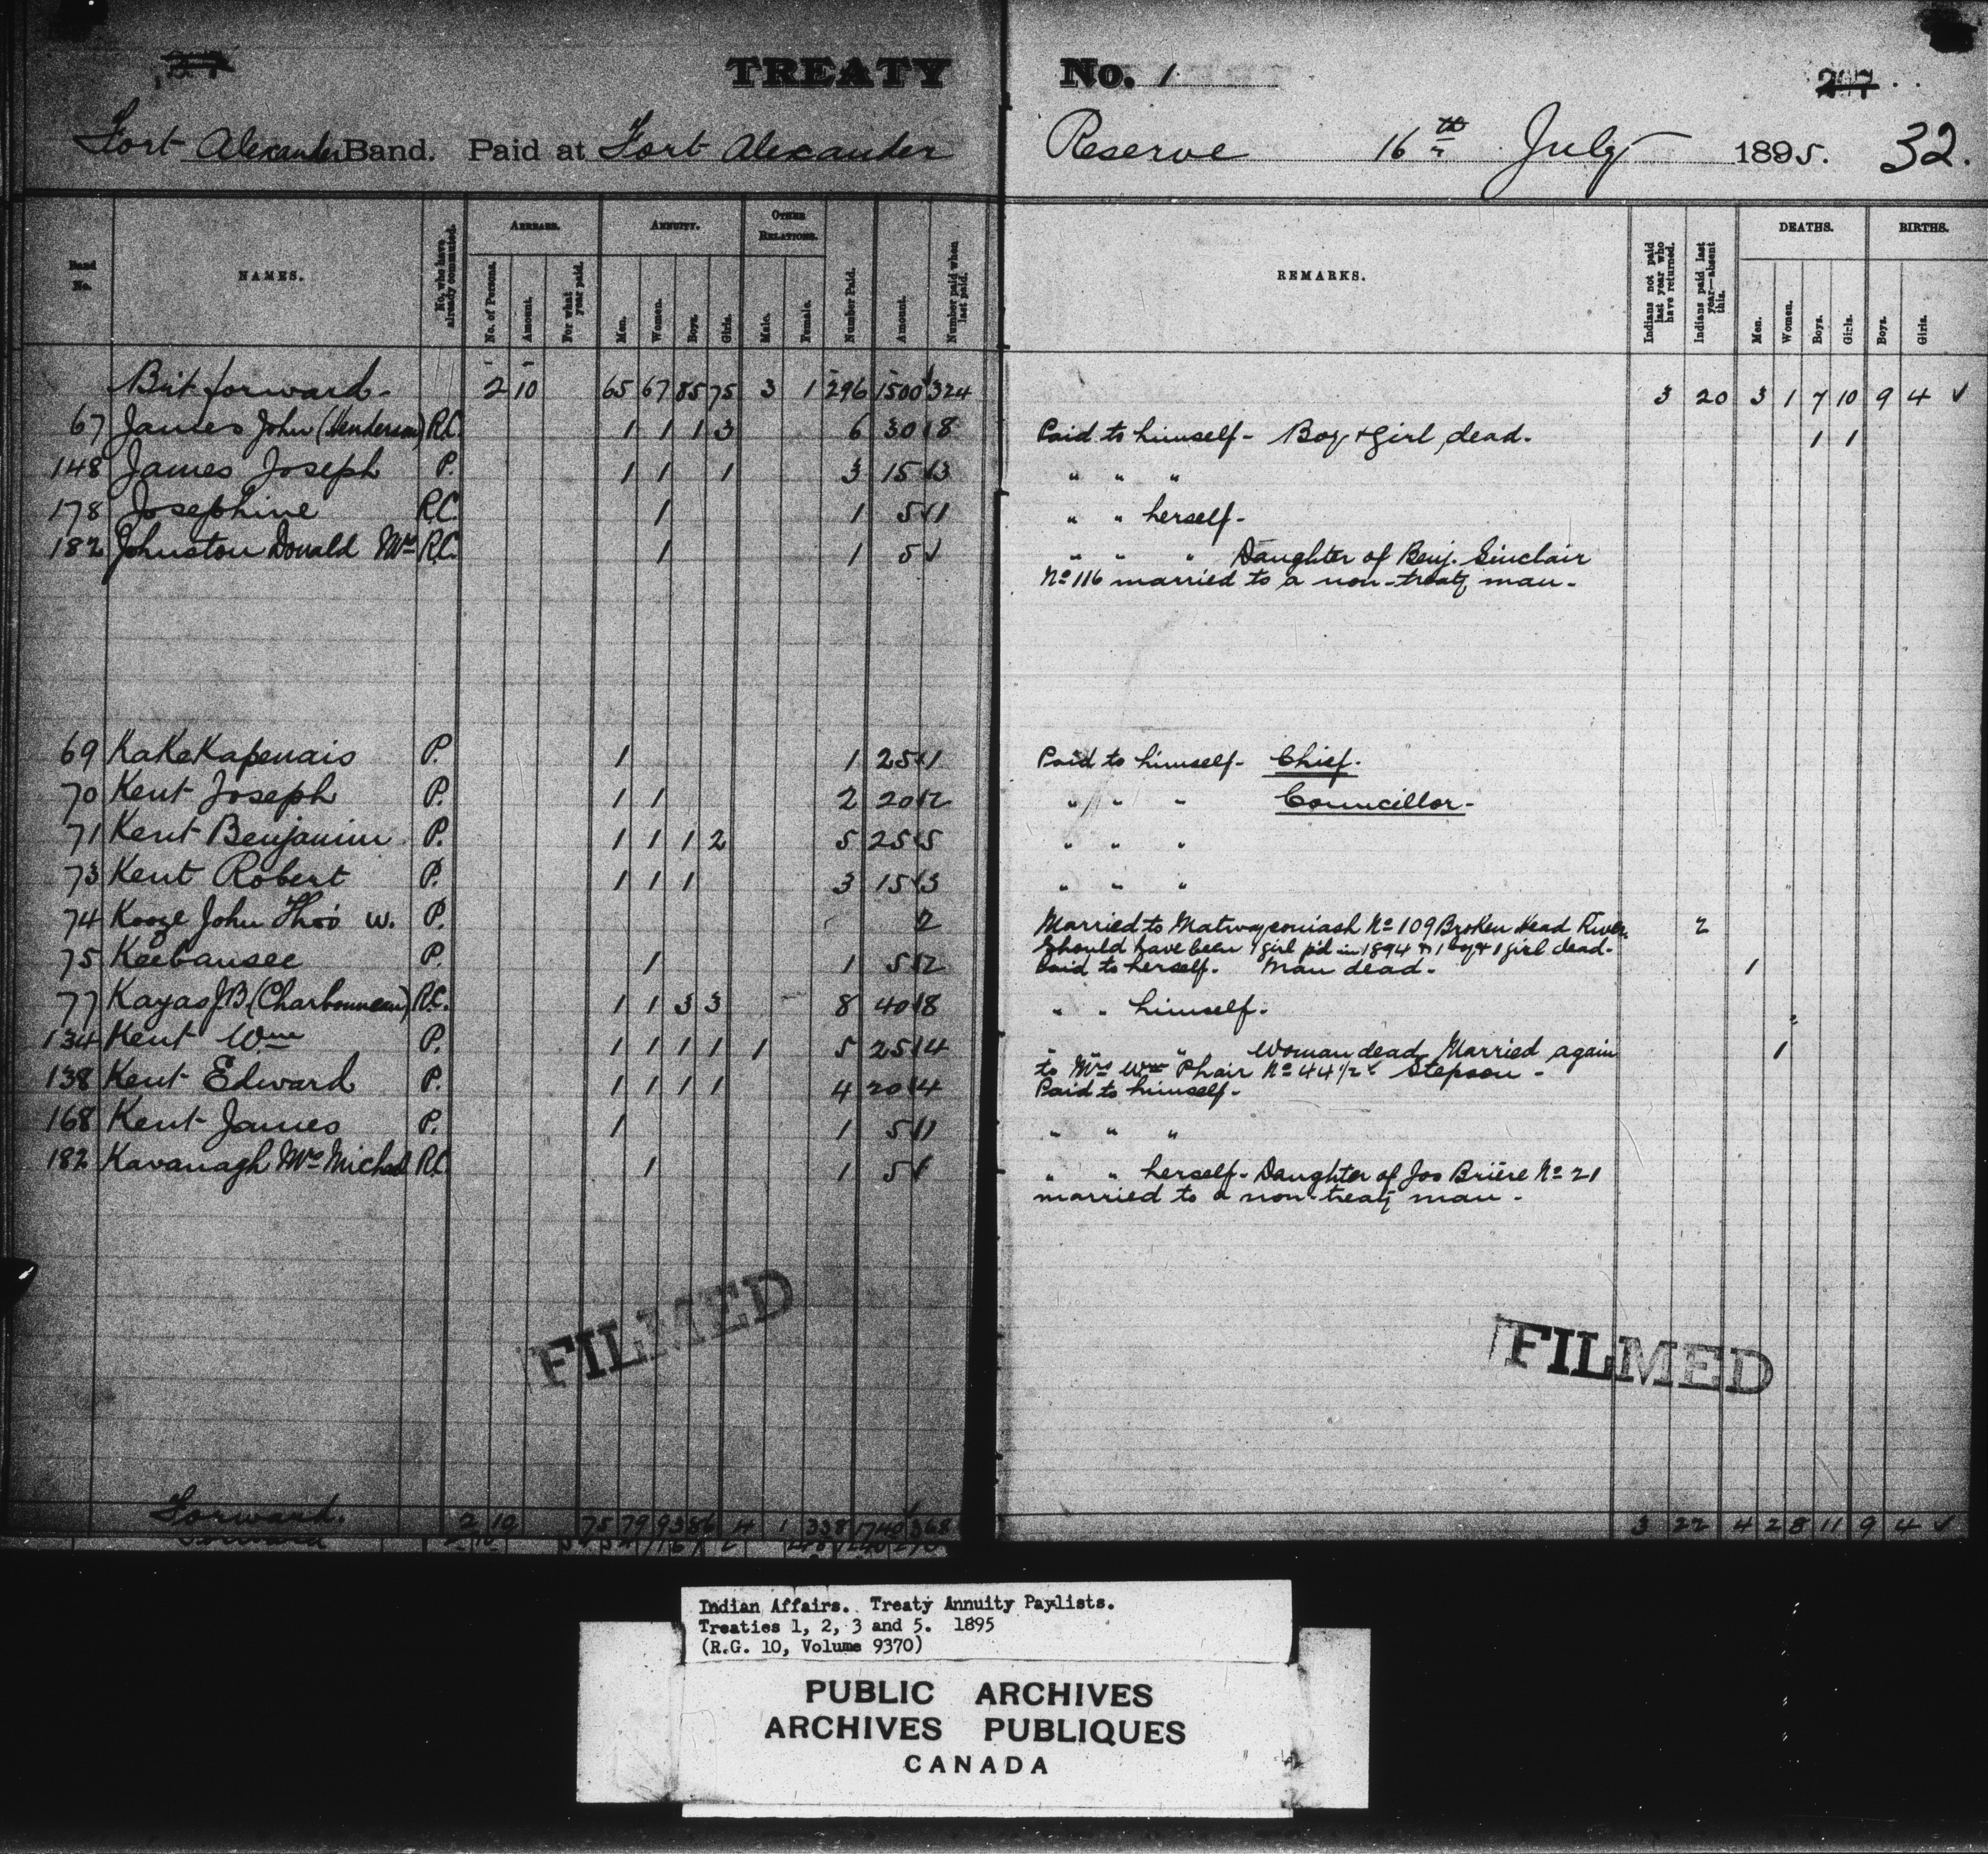 TREATY No. 1
247
Fort Alexander Band. Paid at Fort Alexander Reserve 16th July 1895. 32.
Band No. NAMES. No. who have already commuted. ARREARS. ANNUITY. OTHER RELATIONS. Number Paid. Amount. Number paid when last paid. REMARKS. Indians not paid last year who have returned. Indians paid last year—absent this. DEATHS. BIRTHS.
No. of Persons. Amount. For what year paid. Men. Women. Boys. Girls. Male. Female. Men. Women. Boys. Girls. Boys. Girls.
Brt forward 2 10 65 67 85 75 3 1 296 1500 324 3 20 3 1 7 10 9 4 ✓
67 James John (Henderson) R.C. 1 1 1 3 6 30 8 Paid to himself - Boy & girl dead. 1 1
148 James Joseph P. 1 1 1 3 15 3 " " "
178 Josephine R.C. 1 1 5 1 " " herself -
182 Johnston Donald Mrs R.C. 1 1 5 ✓ " " " Daughter of Benj. Sinclair
No 116 married to a non-treaty man -
69 KaKeKapenais P. 1 1 25 1 Paid to himself - Chief.
70 Kent Joseph P. 1 1 2 20 2 " " " Councillor -
71 Kent Benjamin P. 1 1 1 2 5 25 5 " " "
73 Kent Robert P. 1 1 1 3 15 3 " " "
74 Kooze John Thos W. P. 2 Married to No 109 Broken Head River. 2
Should have been 1 girl p'd in 1894 & 1 boy & 1 girl dead -
75 Keebansee P. 1 1 5 2 Paid to herself. Man dead - 1
77 Kayas J B (Charbonneau) R.C. 1 1 3 3 8 40 8 " " himself -
134 Kent Wm P. 1 1 1 1 1 5 25 4 " " Woman dead Married again 1
to Mrs Wm Phair No 44 1/2 & Stepson -
138 Kent Edward P. 1 1 1 1 4 20 4 Paid to himself -
168 Kent James P. 1 1 5 1 " " "
182 Kavanagh Mrs Michael R.C. 1 1 5 ✓ " " herself - Daughter of Jos Brière No 21
married to a non-treaty man -
FILMED
FILMED
Forward. 2 10 75 79 93 86 4 1 338 1740 368 3 22 4 2 8 11 9 4 ✓
Forward
Indian Affairs. Treaty Annuity Paylists.
Treaties 1, 2, 3 and 5. 1895
(R.G. 10, Volume 9370)
PUBLIC ARCHIVES
ARCHIVES PUBLIQUES
CANADA